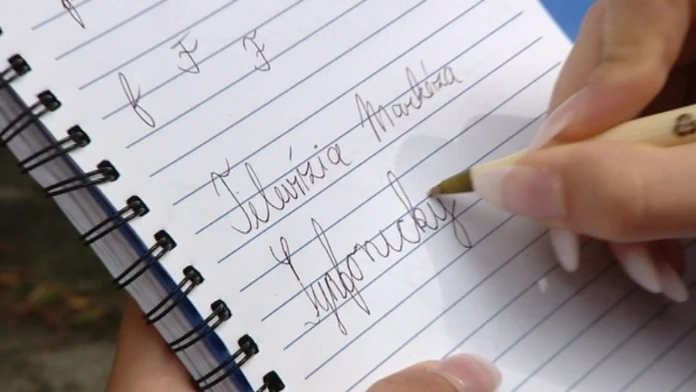 f F F
Televízia Markíza
Symfonický